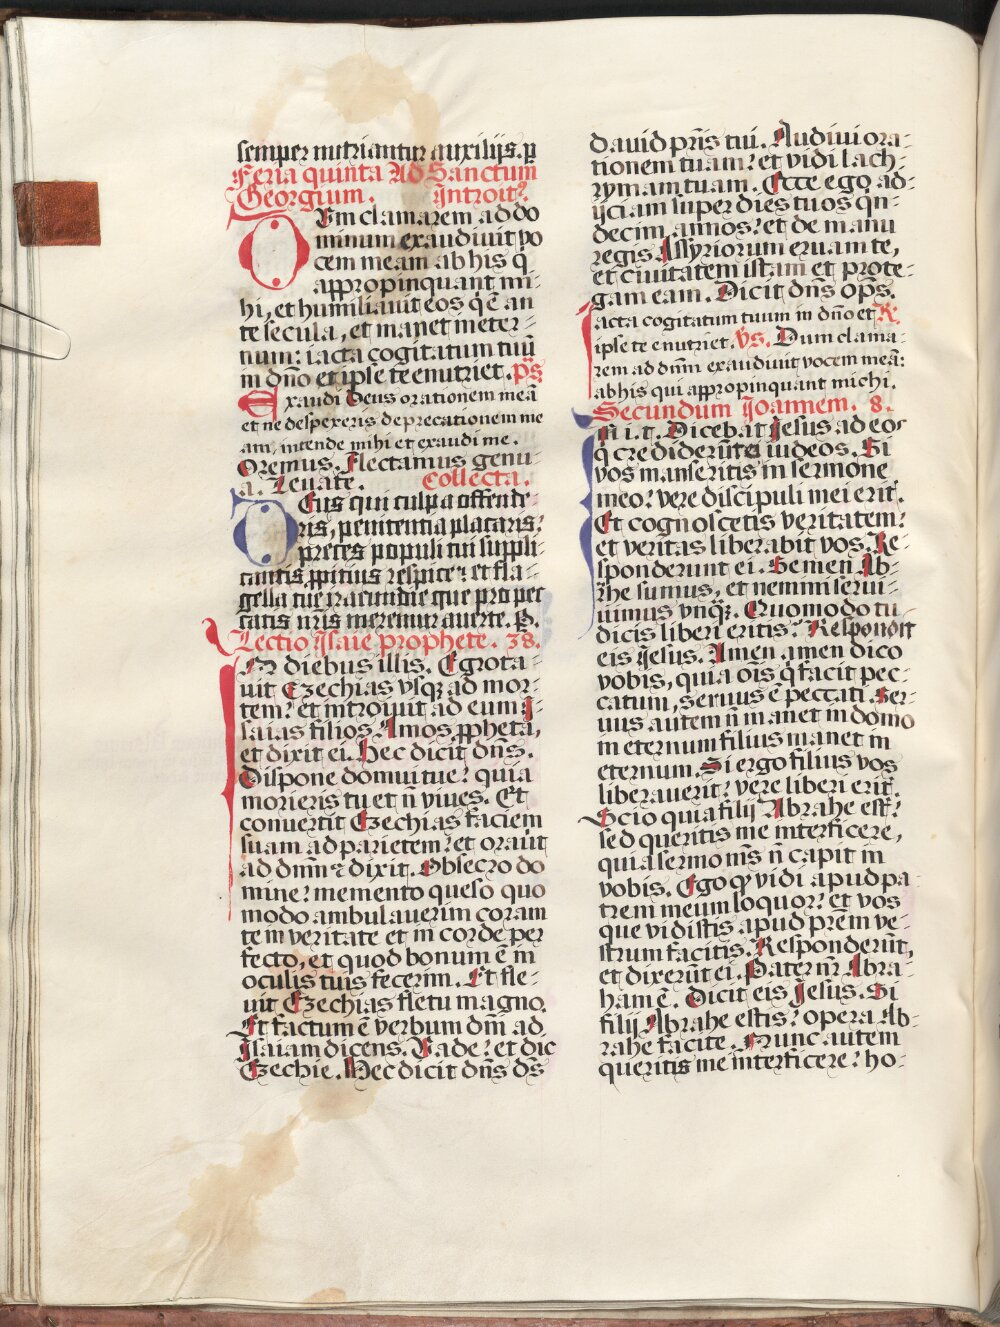 semper nutriantur auxilijs. p
Feria quinta Ad Sanctum
Georgium. Introit?
Dum clamarem ad do
minum exaudiuit vo
cem meam ab his q̇
appropinquant mi-
hi, et humiliauit eos q̇ ē an
te secula, et manet in eter-
num: iacta cogitatum tuū
in dn̄o et ipse te enutriet. p̄s
Exaudi Deus orationem meā
et ne despexeris deprecationem me
am, intende mihi et exaudi me.
Oremus. Flectamus genu-
a. Leuate. Collecta.
Deus qui culpa offende-
ris, penitentia placaris?
preces populi tui suppli-
cantis ꝓpitius respice: et fla-
gella tue iracundie que pro pec
catis nr̄is meremur auerte. P.
Lectio Isaie prophete. 38.
In diebus illis. Egrota-
uit Ezechias vsqꝫ ad mor-
tem? et introiuit ad eum I-
saias filios Amos ꝓpheta,
et dixit ei. Hec dicit dn̄s.
Dispone domui tue? quia
morieris tu et n̄ viues. Et
conuertit Ezechias faciem
suam ad parietem? et orauit
ad dn̄m ꝛ dixit. Obsecro do
mine? memento queso quo
modo ambulauerim coram
te in veritate et in corde per
fecto, et quod bonum ē in
oculis tuis fecerim. Et fle-
uit Ezechias fletu magno.
Et factum ē verbum dn̄i ad
Isaiam dicens. Vade? et dic
Ezechie. Hec dicit dn̄s ds̄
dauid pr̄is tui. Audiui ora-
tionem tuam? et vidi lach-
rymam tuam. Ecce ego ad-
ijciam super dies tuos qn̄-
decim annos? et de manu
regis Assyriorum eruam te,
et ciuitatem istam et prote-
gam eam. Dicit dn̄s op̄s.
Iacta cogitatum tuum in dn̄o et R.
ipse te enutriet. Vs. Dum clama-
rem ad dn̄m exaudiuit vocem meā:
ab his qui appropinquant michi.
Secundum Joannem. 8.
In i. t. Dicebat Iesus ad eos
q̇ crediderūt ei iudeos. Si
vos manseritis in sermone
meo? vere discipuli mei erit̄.
Et cognoscetis veritatem?
et veritas liberabit vos. Re-
sponderunt ei. Semen Ab-
rhe sumus, et nemini serui-
uimus vnqꝫ. Quomodo tu
dicis liberi eritis? Respondit
eis Iesus. Amen amen dico
vobis, quia oīs q̇ facit pec-
catum, seruus ē peccati. Ser-
uus autem n̄ manet in domo
in eternum filius manet in
eternum. Si ergo filius vos
liberauerit? vere liberi erit̄.
Scio quia filij Abrahe est̄?
sed queritis me interficere,
quia sermo mē̄s n̄ capit in
vobis. Ego ꝙ vidi apud pa
trem meum loquor? et vos
que vidistis apud prēm ve-
strum facitis. Responderūt,
et dixerūt ei. Pater nr̄ Abra-
ham ē. Dicit eis Iesus. Si
filij Abrahe estis? opera Ab-
rahe facite. Nunc autem
queritis me interficere? ho-